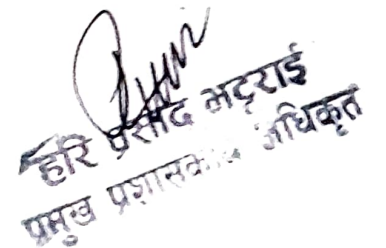 हरि प्रसाद भट्टराई
प्रमुख प्रशासकीय अधिकृत